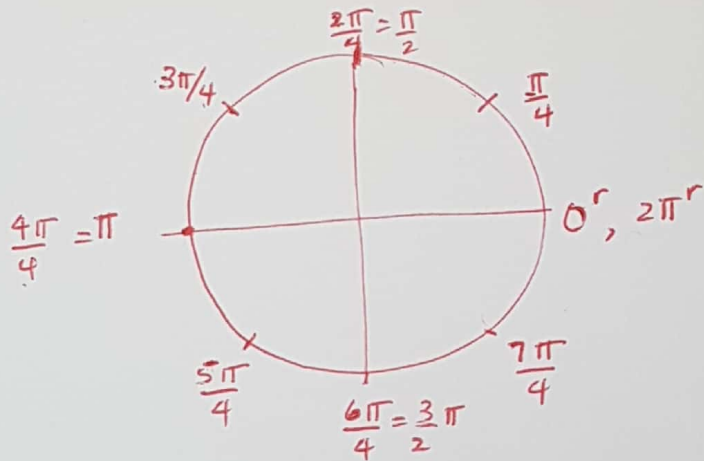 2π/4 = π/2
3π/4
π/4
4π/4 = π
0ʳ, 2πʳ
5π/4
7π/4
6π/4 = 3/2 π